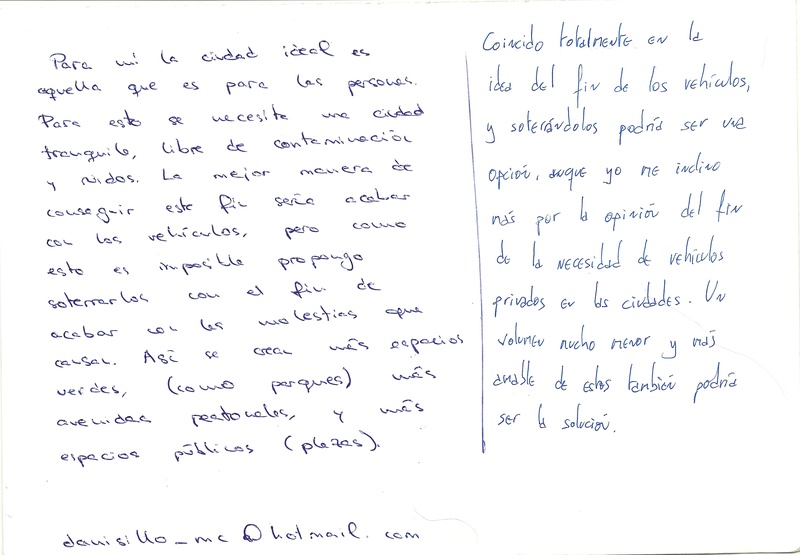 Para mi la ciudad ideal es
aquella que es para las personas.
Para esto se necesita una ciudad
tranquila, libre de contaminación
y ruidos. La mejor manera de
conseguir este fin sería acabar
con los vehículos, pero como
esto es imposible propongo
soterrarlos con el fin de
acabar con las molestias que
causan. Así se crean más espacios
verdes, (como parques) más
avenidas peatonales, y más
espacios públicos (plazas).
danisillo_mc@hotmail.com
Coincido totalmente en la
idea del fin de los vehículos,
y soterándolos podría ser una
opción, auque yo me inclino
más por la opinión del fin
de la necesidad de vehículos
privados en las ciudades. Un
volumen mucho menor y más
amable de estos también podría
ser la solución.